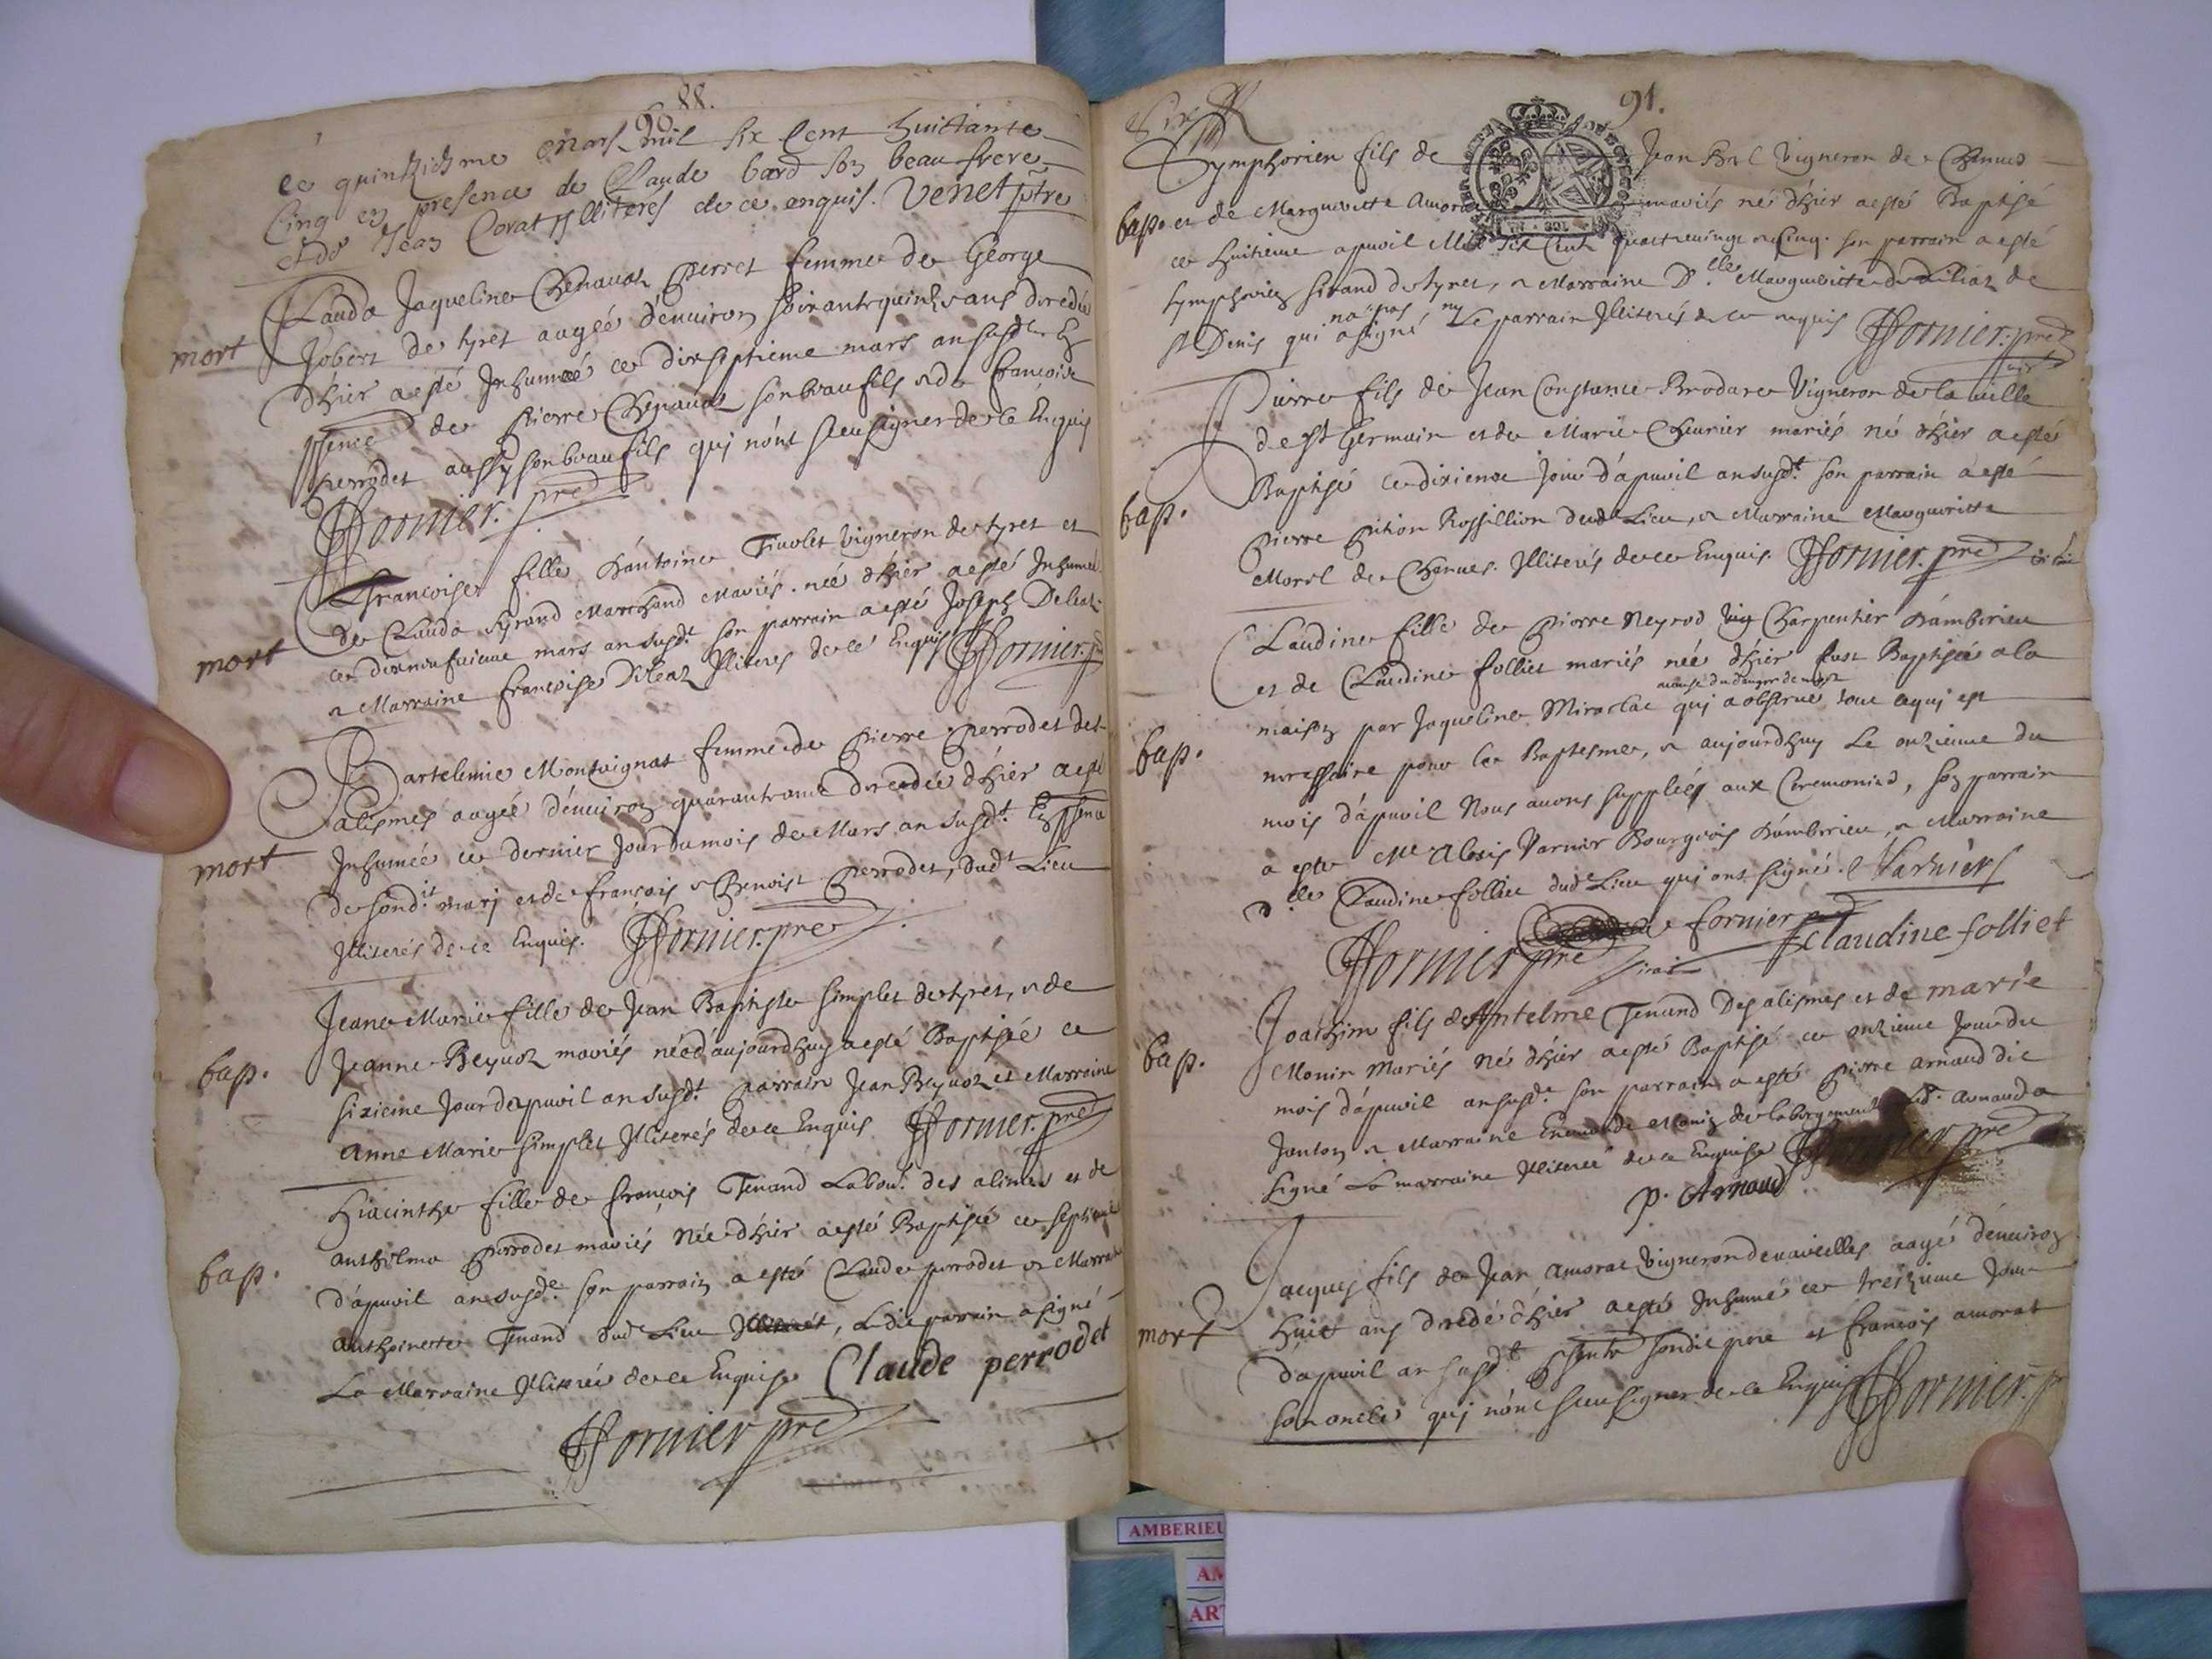 88.
90
ce quinzième mars mil six cent huittante
cinq en presence de Claude bard son beau frere
et de Jean Corat jlliteres de ce enquis. Venet ptre
mort
Clauda Jaqueline Chenauaz Perret femme de George
Jobert de tyret aagée d'enuiron soixantequinze ans decedée
d'hier a esté Inhumée ce dixseptieme mars an susd.t En
psence de Pierre Chenauaz son beaufils & de francoise
perrodet aussy son beau fils quj n'ont sceu signer de ce Enquis
fornier. pre
mort
françoise fille d'Antoine Tiuolet vigneron de tyret et
de Clauda Marchand mariés. née d'hier a esté Inhumée
ce dixneufuieme mars an susd.t son parrain a esté Joseph Deleaz
& Marraine francoise Deleaz jlliteres de ce Enquis fornier.
mort
Bartelmie Montuignat femme de Pierre Perrodet des
alismes aagée d'enuiron quarante ans decedée d'hier a esté
Inhumée ce dernier jour du mois de Mars an susd.t En psence
de sond.it marj et de françois & Benoist Perrodet, dud.t Lieu
jlliterés de ce Enquis. fornier. pre
bap.
Jeane Marie fille de Jean Baptiste simplet de tyret, & de
Jeanne Beyuoz mariés née d'aujourdhuy a esté Baptisée ce
sixieme Jour d'apuril an susd.t parrain Jean Beyuoz et Marraine
Anne Marie simplet jlliterés de ce Enquis fornier. pre
bap.
Hiacinthe fille de françois Tenand Labou.r des alimes et de
anthelma perrodet mariés Née d'hier a esté Baptisée ce septieme
d'apuril an susd.t son parrain a esté Claude perrodet & Marraine
anthoinette Tenand dud.t Lieu, Ledit parrain a signé
La Marraine jlliterée de ce Enquise Claude perrodet
fornier pre
91.
bap.
Symphorien fils de Jean Bal Vigneron de Chanues
et de Marguerite Amorat mariés né d'hier a esté Baptisé
ce huitieme apuril Mil six Cent quattreuingt & Cinq. son parrain a esté
symphorien sirand de tyret, & Marraine D.lle Margueritte de Dileaz de
st Denis qui n'a pas signé ny Le parrain jlliterés de ce enquis fornier. pre
bap.
Pierre fils de Jean Constance Brodare Vigneron de la ville
de st Germain et de Marie Cheurier mariés né d'hier a esté
Baptisé ce dixieme jour d'apuril an susd.t son parrain a esté
Pierre Pition Rossillion dud.t Lieu, & Marraine Marguerite
Morel de Chanues. jlliterés de ce Enquis. fornier. pre
bap.
Claudine fille de Pierre Neyrod Charpentier d'amberieu
et de Claudine folliet mariés née d'hier fust Baptisée a la
a cause du danger de mort
maison par Jaqueline Miraclae quj a obserué tout ce quj est
necessaire pour le Baptesme, & aujourdhuy Le onzieme du
mois d'apuril Nous auons suppliés aux Ceremonies, son parrain
a esté Me Alexis Varnier Bourgeois d'amberieu, & Marraine
D.lle Claudine folliet dud.t Lieu quj ont signé. Varnier
fornier
fornier pre claudine folliet
bap.
Joachim fils de Antelme Tenand Des alismes et de marie
Monin Mariés Né d'hier a esté Baptisé ce onzieme Jour du
mois d'apuril an susd.t son parrain a esté pierre arnaud dit
Janton & Marraine Enemonde Monin Led.t Arnaud a
signé La marraine jlliterée de ce Enquise fornier pre
P. Arnaud
mort
Jacques fils de Jean amorat Vigneron de uareilles aagé d'enuiron
huict ans decedé d'hier a esté Inhumé ce treizieme jour
d'apuril an susd.t psents sondit pere et françois amorat
son oncle quj n'ont sceu signer de ce Enquis fornier.
AMBERIEU